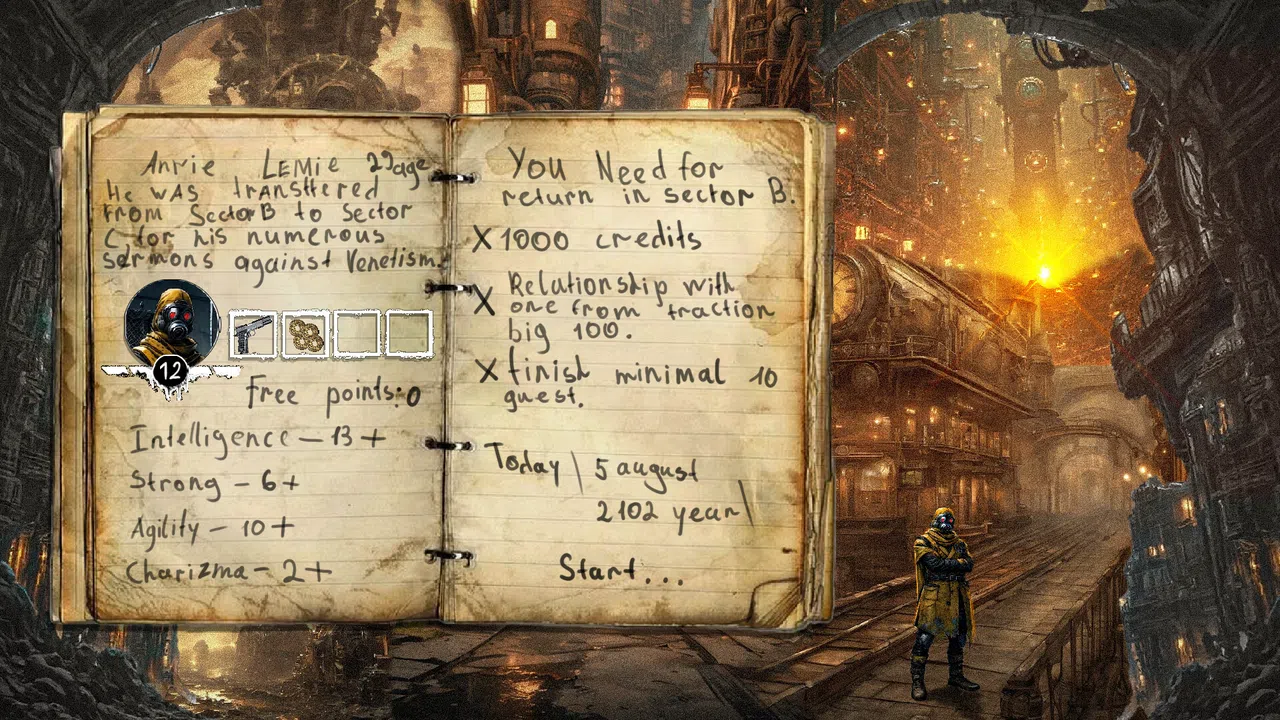 Anrie LEMIE 22age
He was transttered
from Sector B to Sector
C, for his numerous
sermons against Venetism.
12
Free points:0
Intelligence - 13 +
Strong - 6 +
Agility - 10 +
Charizma - 2 +
You Need for
return in sector B.
X 1000 credits
Relationship with
X one from fraction
big 100.
X finish minimal 10
quest.
Today \ 5 august
2102 year \
Start...